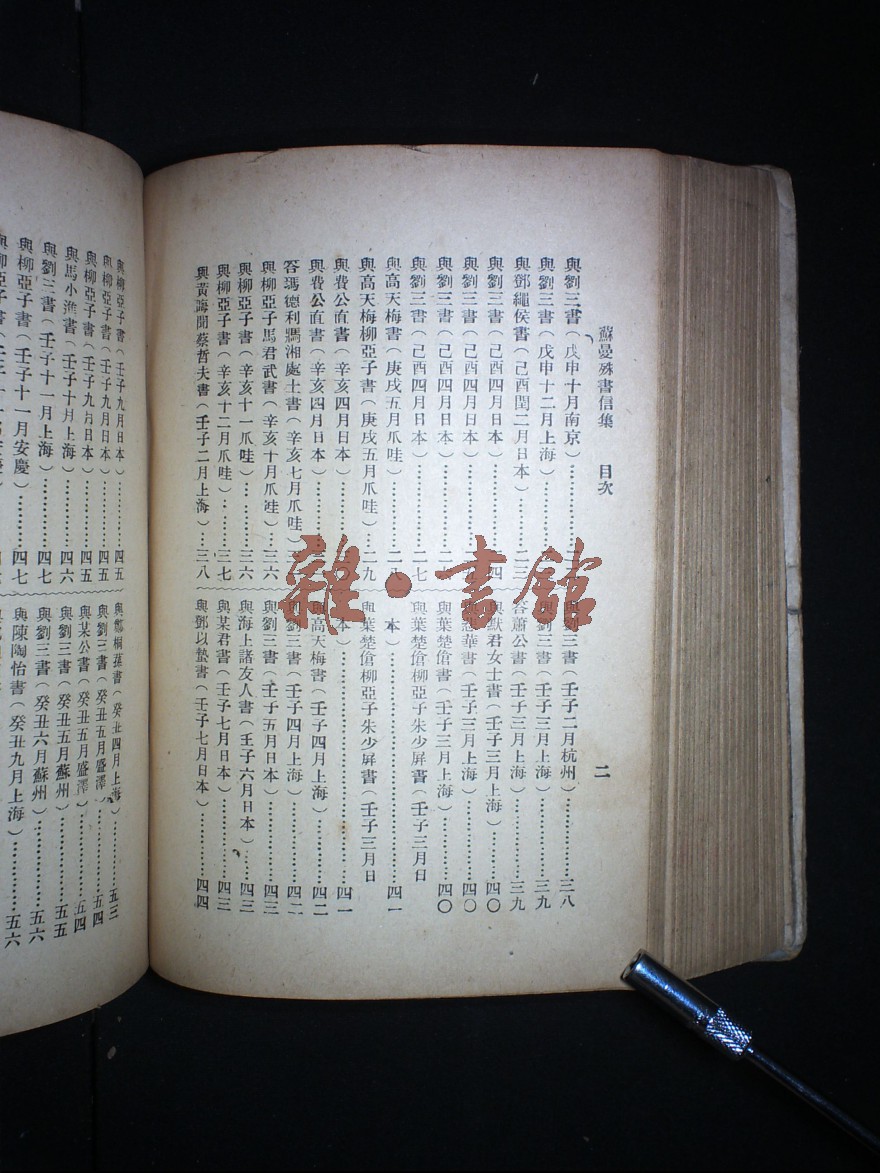 蘇曼殊書信集 目次
二
與劉三書（戊申十月南京）
與劉三書（戊申十二月上海）
與鄧繩侯書（己酉閏二月日本）二三
與劉三書（己酉四月日本）四
與劉三書（己酉四月日本）
與劉三書（己酉四月日本）
與劉三書（己酉四月日本）二七
與高天梅書（庚戌五月爪哇）二八
與高天梅柳亞子書（庚戌五月爪哇）二九
與費公直書（辛亥四月日本）
與費公直書（辛亥四月日本）
答瑪德利瑪湘處士書（辛亥七月爪哇）
與柳亞子馬君武書（辛亥十月爪哇）三六
與柳亞子書（辛亥十一爪哇）三六
與柳亞子書（辛亥十二月爪哇）三七
與黃晦聞蔡哲夫書（壬子二月上海）三八
與劉三書（壬子二月杭州）三八
與劉三書（壬子三月上海）三九
答蕭公書（壬子三月上海）三九
與默君女士書（壬子三月上海）四〇
華書（壬子三月上海）四〇
與葉楚傖書（壬子三月上海）四〇
與葉楚傖柳亞子朱少屏書（壬子三月日
本）四一
與葉楚傖柳亞子朱少屏書（壬子三月日
本）四一
與高天梅書（壬子四月上海）四二
與劉三書（壬子四月上海）四二
與劉三書（壬子五月日本）四三
與海上諸友人書（壬子六月日本）四三
與某君書（壬子七月日本）四三
與鄧以蟄書（壬子七月日本）四四
與柳亞子書（壬子九月日本）四五
與柳亞子書（壬子九月日本）四五
與馬小進書（壬子十月上海）四六
與劉三書（壬子十一月上海）四七
與柳亞子書（壬子十一月安慶）四七
與柳亞子書
與鄭桐蓀書（癸丑四月上海）五三
與劉三書（癸丑五月盛澤）五四
與某公書（癸丑五月盛澤）五四
與劉三書（癸丑五月蘇州）五五
與劉三書（癸丑六月蘇州）五六
與陳陶怡書（癸丑九月上海）五六
雜·書館